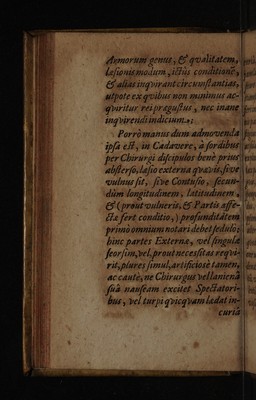 Armorum genus, & qvalitatem,
læsionis modum, ictûs conditionē,
& alias inqvirant circumstantias,
utpote ex qvibus non minimus ac-
qviritur rei prægustus, nec inane
inqvirendi indicium.
Porrò manus dum admovenda
ipsa est, in Cadavere, à sordibus
per Chirurgi discipulos benè prius
absterso, læsio externa qvævis, sive
vulnus sit, sive Contusio, secun-
dùm longitudinem, latitudinem,
& (prout vulneris, & Partis affe-
ctæ fert conditio,) profunditatem
primò omnium notari debet sedulò;
hinc partes Externæ, vel singulæ
seorsim, vel, prout necessitas reqvi-
rit, plures simul, artificiosè tamen,
ac cautè, ne Chirurgus vel laniena
suâ nauseam excitet Spectatori-
bus, vel turpi qvicqvam lædat in-
curiâ